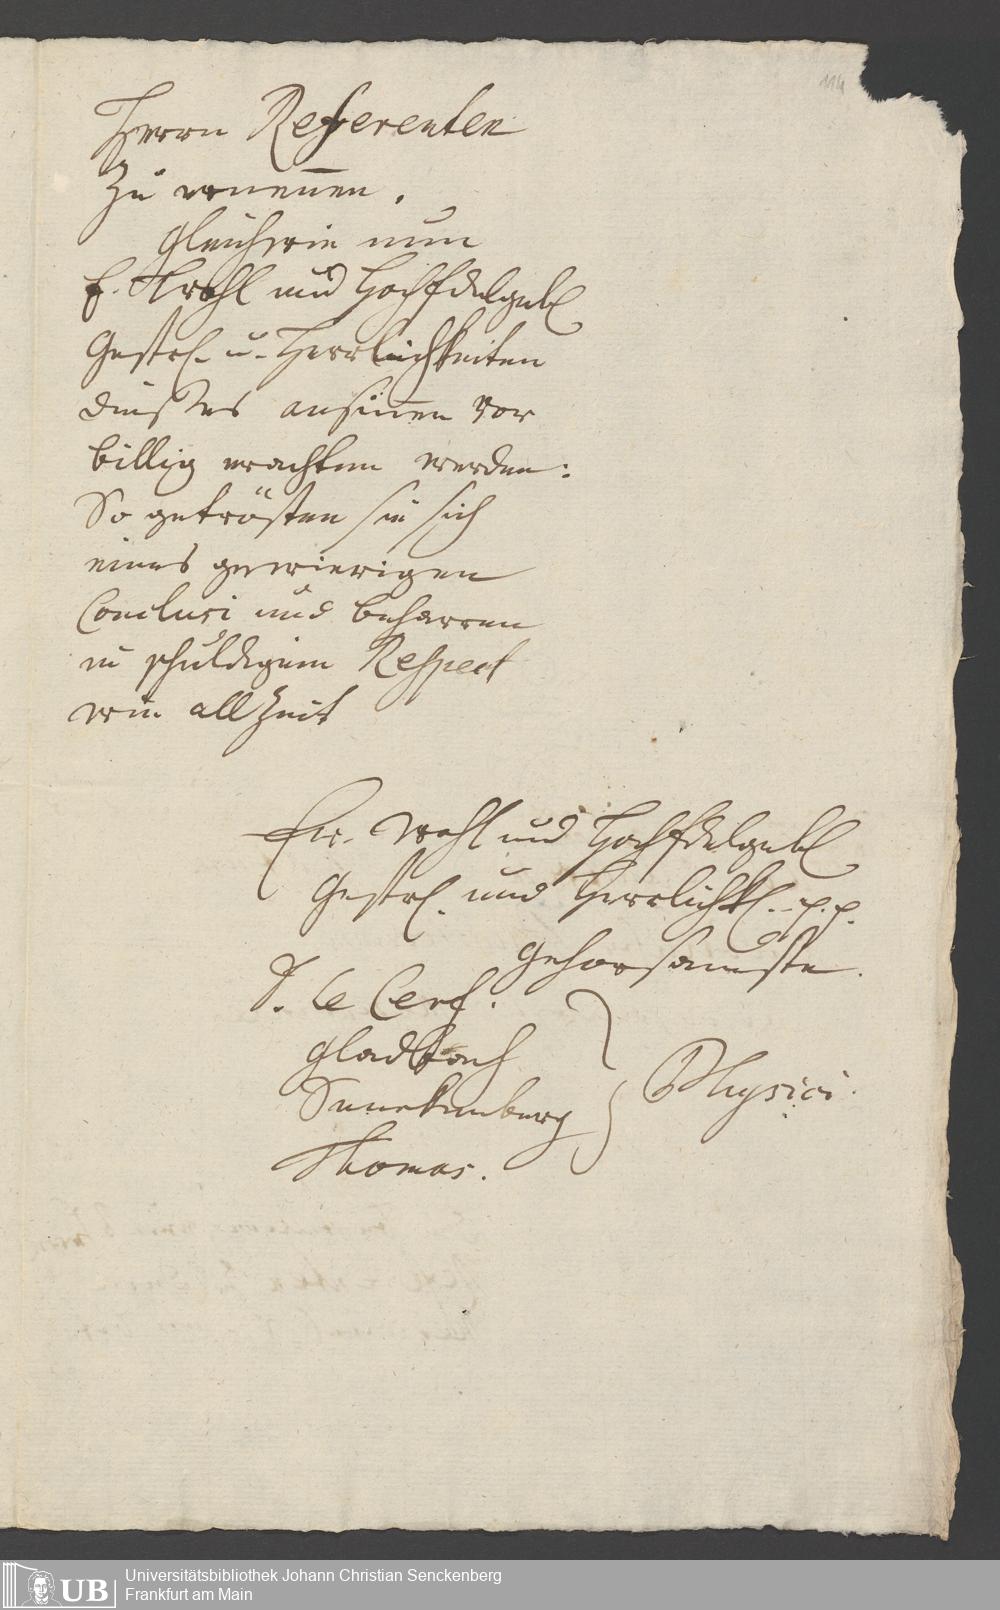 114
Herrn Referenten
Zu ernennen.
Gleichwie nun
E. Wohl und HochEdelgeb.
Gestr. u. Herrlichkeiten
dieses ansinnen vor
billig erachten werden:
So getrösten sie sich
eines gewierigen
Conclusi und beharren
in schuldigem Respect
wie allzeit
Ew. Wohl und HochEdelgeb.
Gestr. und Herrlichk. p.p.
gehorsamste.
J. le Cerf.
Gladbach
Senckenberg
Thomas.
Physici.
UB
Universitätsbibliothek Johann Christian Senckenberg
Frankfurt am Main